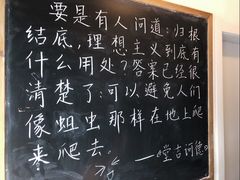 要是有人问道：归根
结底，理想主义到底有
什么用处？答案已经很
清楚了：可以避免人们
像蛆虫那样在地上爬
来爬去。
——堂吉诃德。